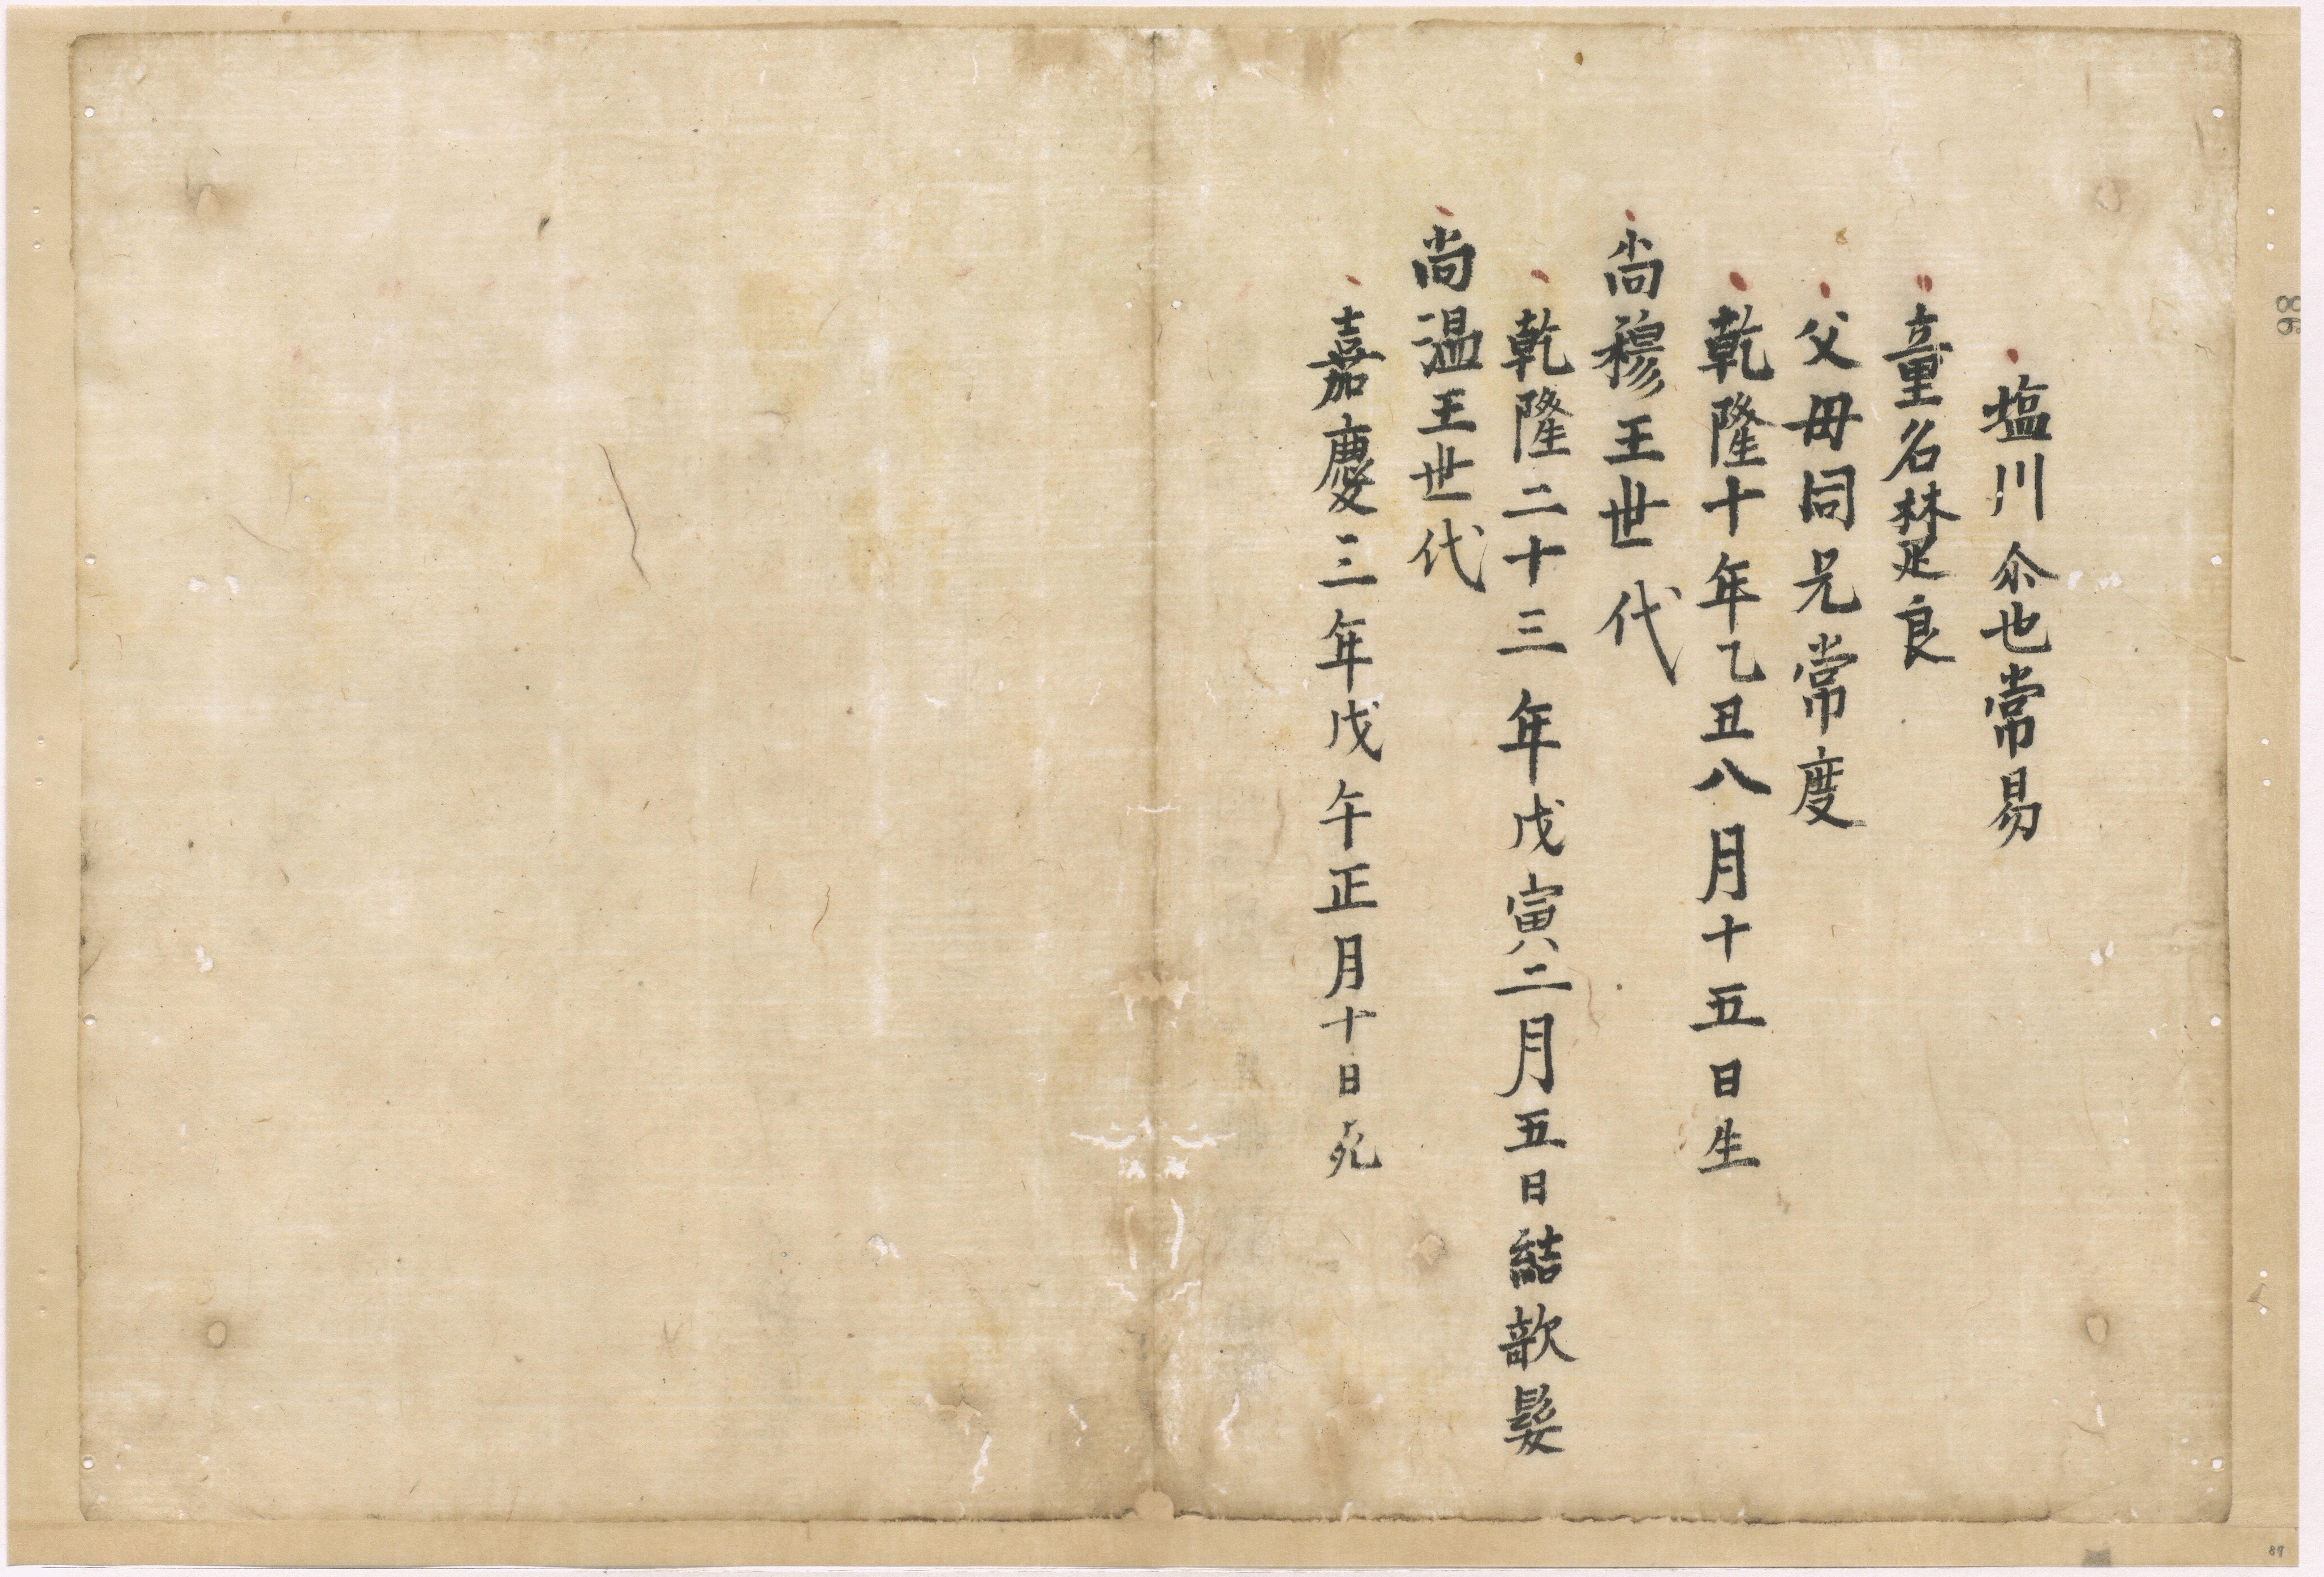 塩川尒也常易
童名樊良
父母同兄常度
乾隆十年乙丑八月十五日生
尚穆王世代
乾隆二十三年戊寅二月五日結欹髪
尚温王世代
嘉慶三年戊午正月十日死
86
87